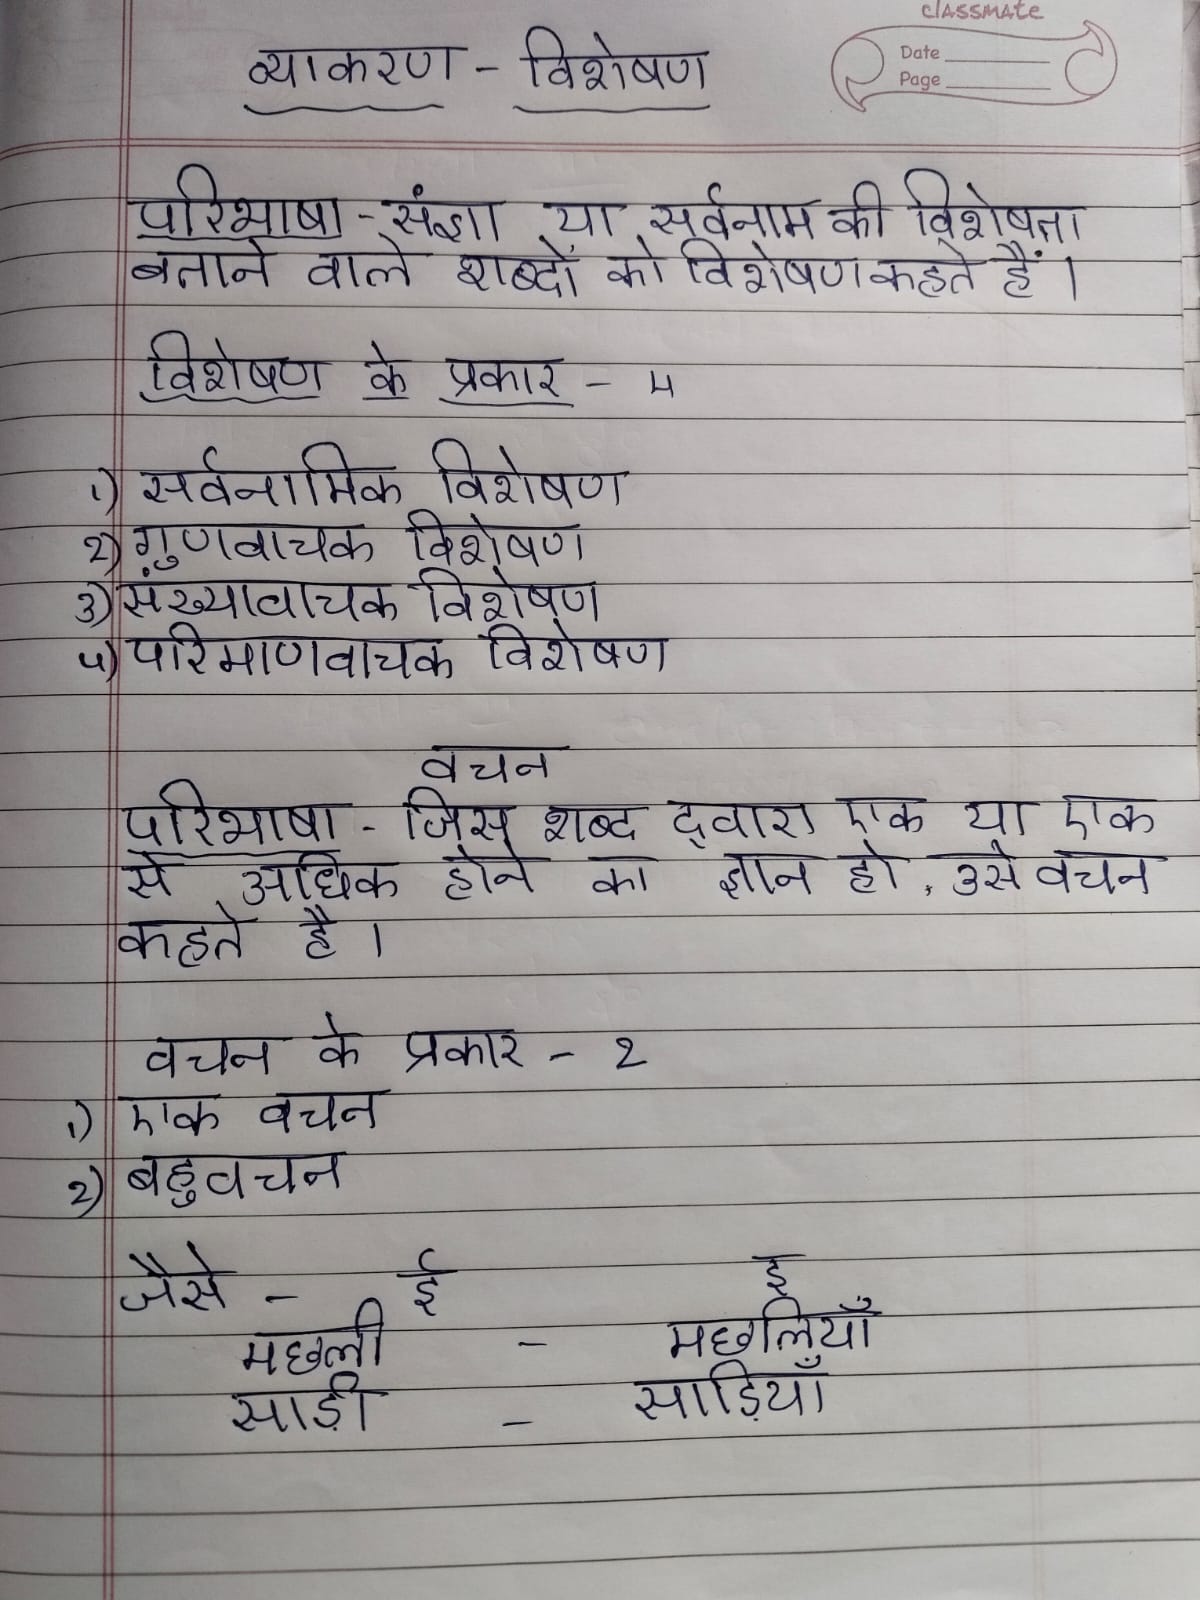 classmate
Date
Page
व्याकरण - विशेषण
परिभाषा - संज्ञा या सर्वनाम की विशेषता
बताने वाले शब्दों को विशेषण कहते हैं ।
विशेषण के प्रकार - 4
1) सर्वनामिक विशेषण
2) गुणवाचक विशेषण
3) संख्यावाचक विशेषण
4) परिमाणवाचक विशेषण
वचन
परिभाषा - जिस शब्द द्वारा एक या एक
से अधिक होने का ज्ञान हो, उसे वचन
कहते है ।
वचन के प्रकार - 2
1) एक वचन
2) बहुवचन
जैसे - ई इ
मछली - मछलियाँ
साड़ी - साड़ियाँ